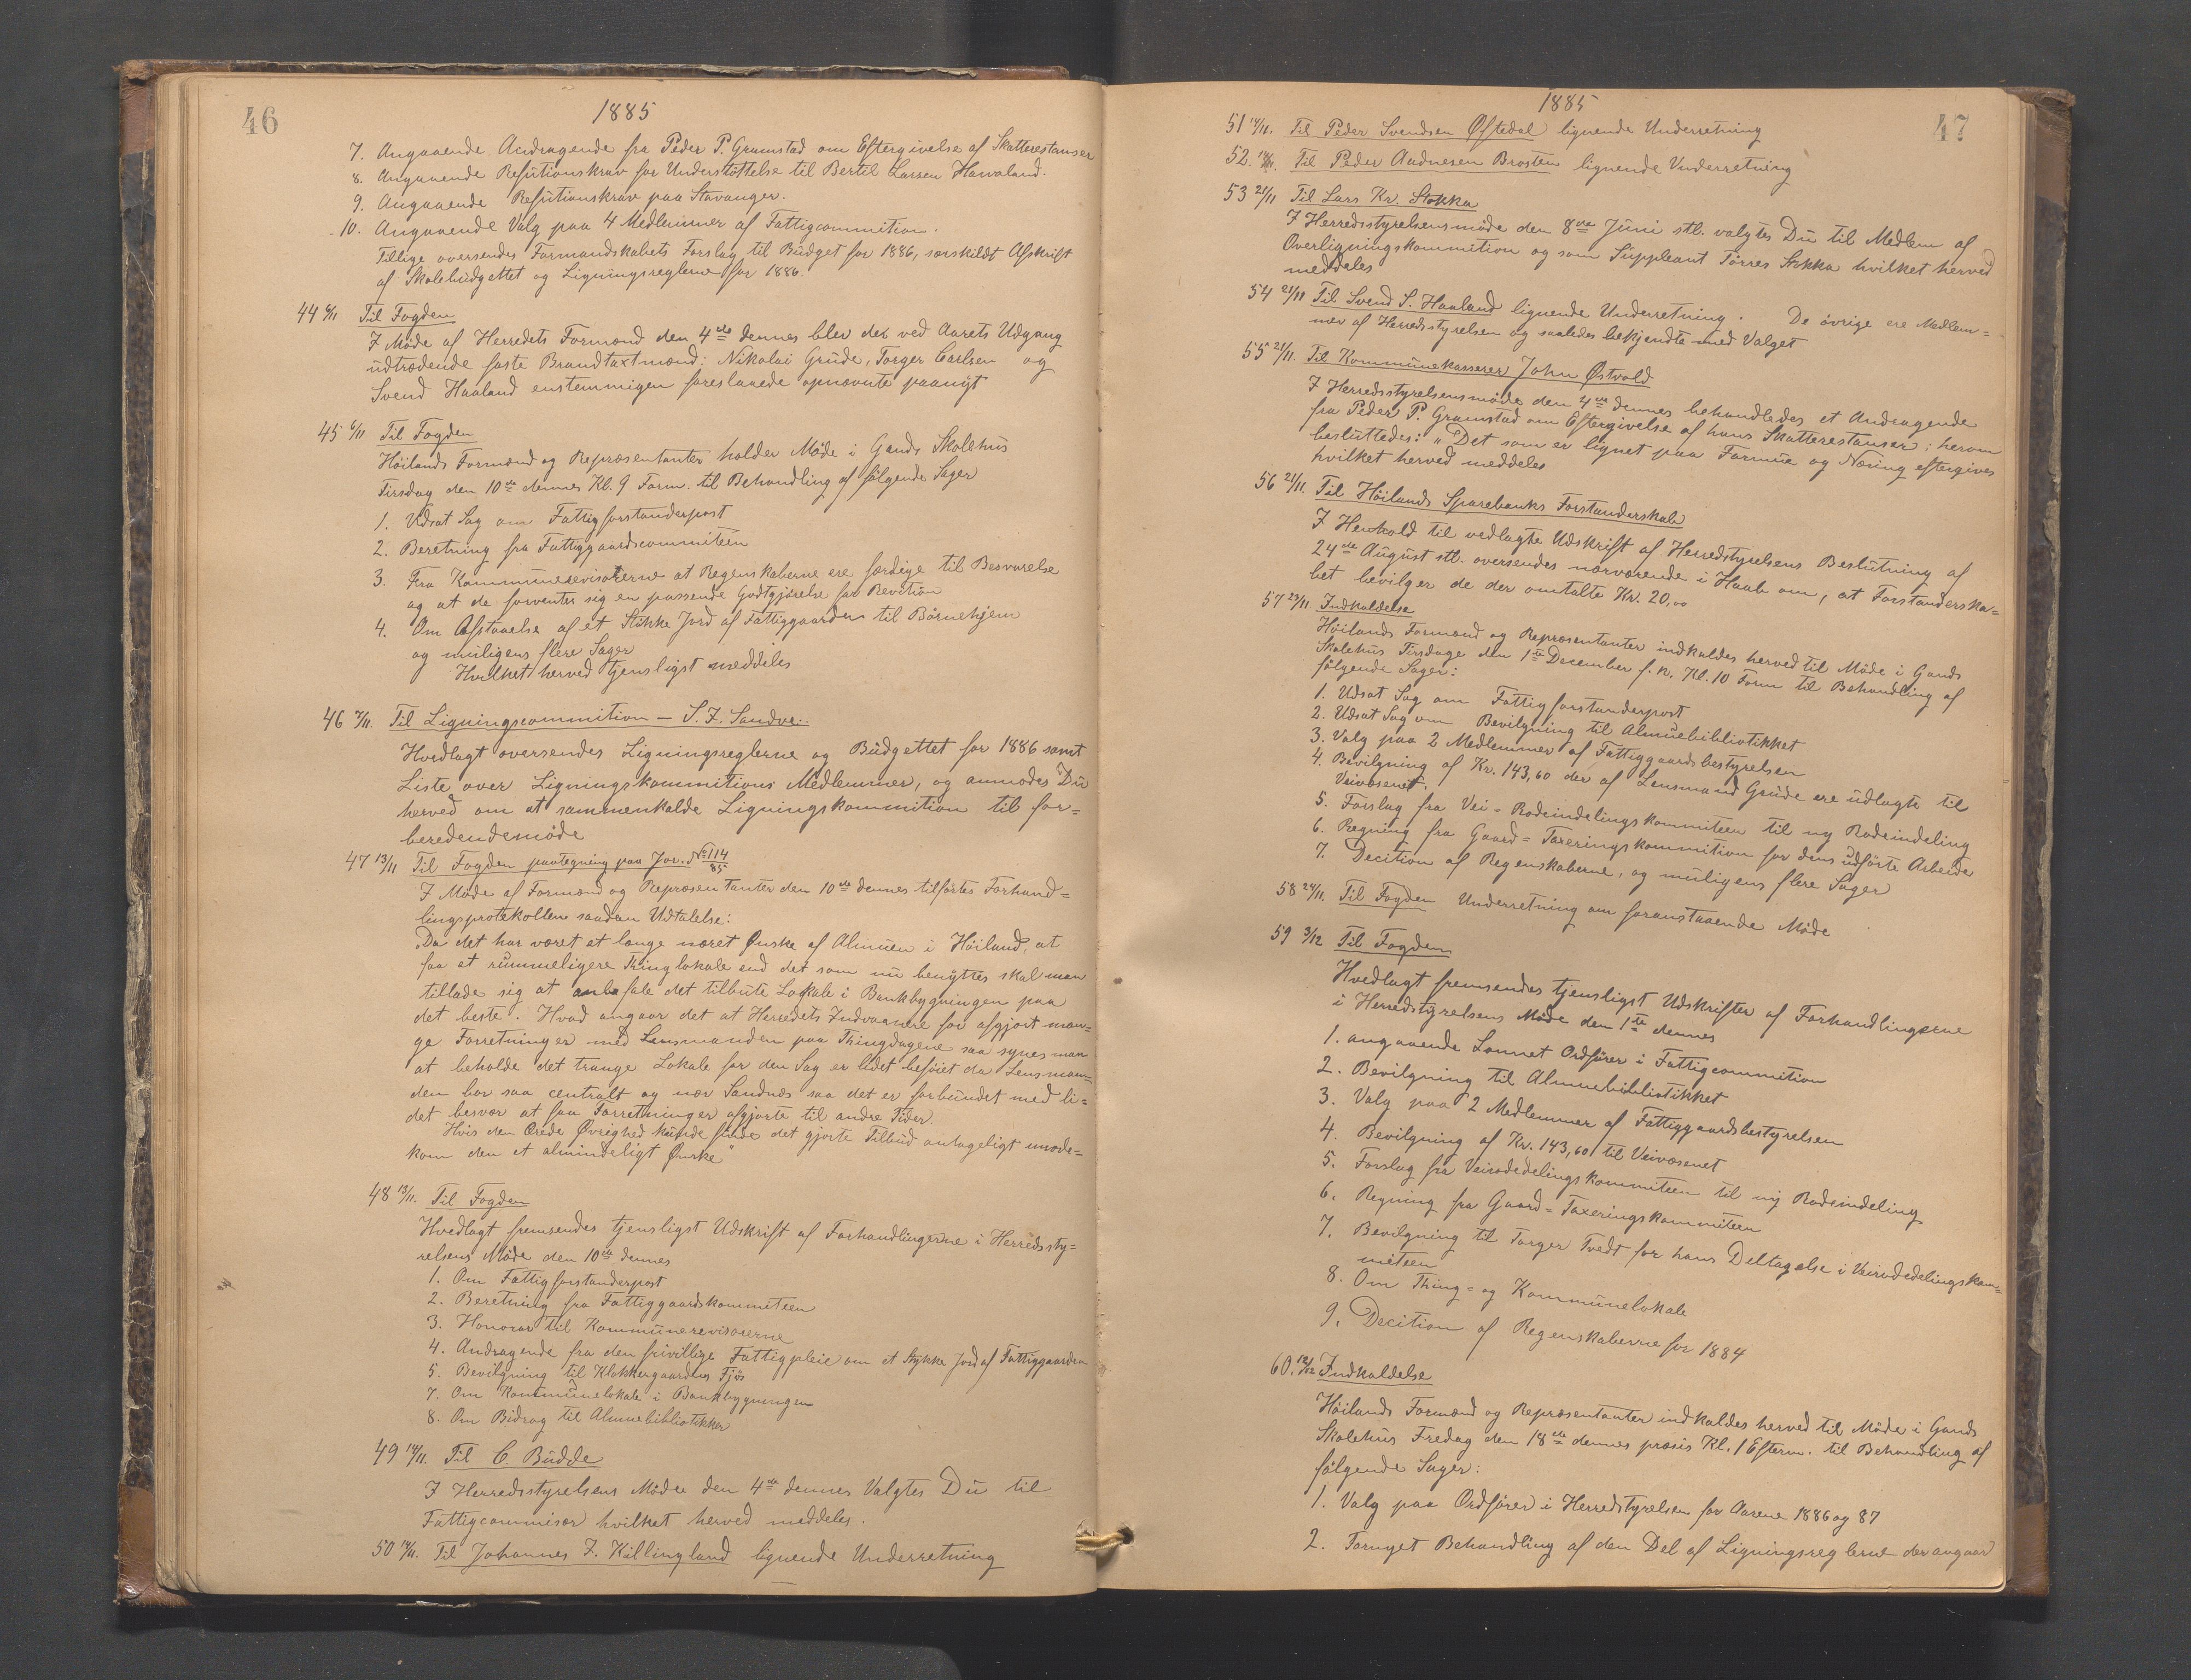 46
1885
7. Angaaende Andragende fra Peder P. Gramstad om Eftergivelse af Skatterestanser
8. Angaaende Refutionskrav for Understöttelse til Bertil Larsen Hawaland.
9. Angaaende Refutionskrav paa Stavanger.
10. Angaaende Valg paa 4 Medlemmer af Fattigcommition.
Tillige oversendes Formandskabets Forslag til Budget for 1886, særskildt Afskrift
af Skolebudgettet og Ligningsreglerne for 1886.
44 6/11 Til Fogden
I Möde af Herredets Formænd den 4de dennes blev de ved Aarets Udgang
udtrædende faste Brandtaxtmænd; Nikolai Grude, Torger Carlsen og
Svend Haaland enstemmigen foreslaaede opnævnte paanyt
45 6/11 Til Fogden
Höilands Formænd og Repræsentanter holder Möde i Gands Skolehus
Tirsdag den 10de dennes Kl. 9 Form. til Behandling af fölgende Sager
1. Udsat Sag om Fattigforstanderpost
2. Beretning fra Fattiggaardscommiteen
3. Fra Kommunerevisorerne at Regenskaberne ere færdige til Besvarelse
og at de forventer sig en passende Godtgjörelse for Revition
4. Om Afstaaelse af et Stökke Jord af Fattiggaarden til Börnehjem
og muligens flere Sager
Hvilket herved tjensligst meddeles
46 7/11. Til Ligningscommition — S. I. Sandve..
Hvedlagt oversendes Ligningsreglerne og Budgettet for 1886 samt
Liste over Ligningskommitions Medlemmer, og anmodes Du
herved om at sammenkalde Ligningskommition til for=
beredendemöde
47 13/11 Til Fogden paategning paa Jor. No 114/85
I Möde af Formænd og Repræsentanter den 10de dennes tilförtes Forhand=
lingsprotokollen saadan Udtalelse:
"Da det har været et længe næret Ønske af Almuen i Höiland, at
faa et rummeligere Thinglokale end det som nu benyttes skal man
tillade sig at anbefale det tilbute Lokale i Bankbygningen paa
det beste. Hvad angaar det at Herredets Indvaanere for afgjort man=
ge Forretninger med Lensmanden paa Thingdagene saa synes man
at beholde det trange Lokale for den Sag er lidet beföiet da Lensman=
den bor saa centralt og nær Sandnæs saa det er forbundet med li=
det besvær at faa Forrethninger afgjorte til andre Tider
Hvis den Ærede Øvrighed kunde finde det gjorte Tilbud antageligt imöde=
kom den et almindeligt Ønske"
48 13/11. Til Fogden
Hvedlagt fremsendes tjensligst Udskrift af Forhandlingerne i Herredssty=
relsens Möde den 10de dennes
1. Om Fattigforstanderpost
2. Beretning fra Fattiggaardskommiteen
3. Honorar til Kommunerevisorerne
4. Andragende fra den frivillige Fattigpleie om et Stykke Jord af Fattiggaarden
5. Bevilgning til Klokkergaardens Fjös
7. Om Kommunelokale i Bankbygningen
8. Om Bidrag til Almuebibliotikker
49 14/11. Til C. Budde
I Herredsstyrelsens Möde den 4de dennes Valgtes Du til
Fattigcommisær hvilket herved meddeles.
50 14/11. Til Johannes I. Kállingland lignende Underretning
1885
47
51 14/11. Til Peder Svendsen Øftedal lignende Underretning
52. 14/11. Til Peder Aadnesen Brasten lignende Underretning
53 21/11 Til Lars Kr. Stokka
I Herredsstyrelsensmöde den 8de Juni stl. valgtes Du til Medlem af
Overligningskommition og som Suppleant Törres Stokka hvilket herved
meddeles
54 21/11 Til Svend S. Haaland lignende Underretning. De övrige ere Medlem=
mer af Herredsstyrelsen og saaledes bekjendte med Valget
55 21/11. Til Kommunekasserer John Østvold
I Herredsstyrelsensmöde den 4de dennes behandledes et Andragende
fra Peder P. Gramstad om Eftergivelse af hans Skatterestanser; herom
besluttedes: "Det som er lignet paa Formue og Næring eftergives
hvilket herved meddeles
56 21/11. Til Höilands Sparebanks Forstanderskab
I Henhold til vedlagte Udskrift af Herredstyrelsens Beslutning af
24de August stl. oversendes nærværende i Haab om, at Forstanderska=
bet bevilger de der omtalte Kr. 20,00
57 23/11 Indkaldelse
Höilands Formænd og Repræsentanter indkaldes herved til Möde i Gands
Skolehus Tirsdage den 1ste December f. k. Kl. 10 Form til Behandling af
fölgende Sager:
1. Udsat Sag om Fattigforstanderpost
2. Udsat Sag om Bevilgning til Almuebibliotikket
3. Valg paa 2 Medlemmer af Fattiggaardsbestyrelsen
4. Bevilgning af Kr. 143,60 der af Lensmand Grude ere udlagte til
Veivæsenet.
5. Forslag fra Vei-Rodeindelingskommiteen til ny Rodeindeling
6. Regning fra Gaard=Taxeringskommition for dens udförte Arbeide
7. Decition af Regenskaberne, og muligens flere Sager
58 24/11. Til Fogden Underretning om foranstaaende Möde
59 3/12 Til Fogden
Hvedlagt fremsendes tjensligst Udskrifter af Forhandlingerne
i Herredstyrelsens Möde den 1ste dennes
1. angaaende Lönnet Ordförer i Fattigcommition
2. Bevilgning til Almuebibliotikket
3. Valg paa 2 Medlemmer af Fattiggaardsbestyrelsen
4. Bevilgning af Kr. 143,60 til Veivæsenet
5. Forslag fra Veirodedelingskommiteen til ny Rodeindeling
6. Regning fra Gaard=Taxeringskommiteen
7. Bevilgning til Torger Tvedt for hans Deltagelse i Veirodedelingskom=
miteen
8. Om Thing= og Kommunelokale
9. Decition af Regenskaberne for 1884
60. 12/12 Indkaldelse
Höilands Formænd og Repræsentanter indkaldes herved til Möde i Gands
Skolehus Fredag den 18de dennes præsis Kl. 1 Efterm. til Behandling af
fölgende Sager:
1. Valg paa Ordförer i Herredstyrelsen for Aarene 1886 og 87
2. Fornyet Behandling af den Del af Ligningsreglerne der angaar